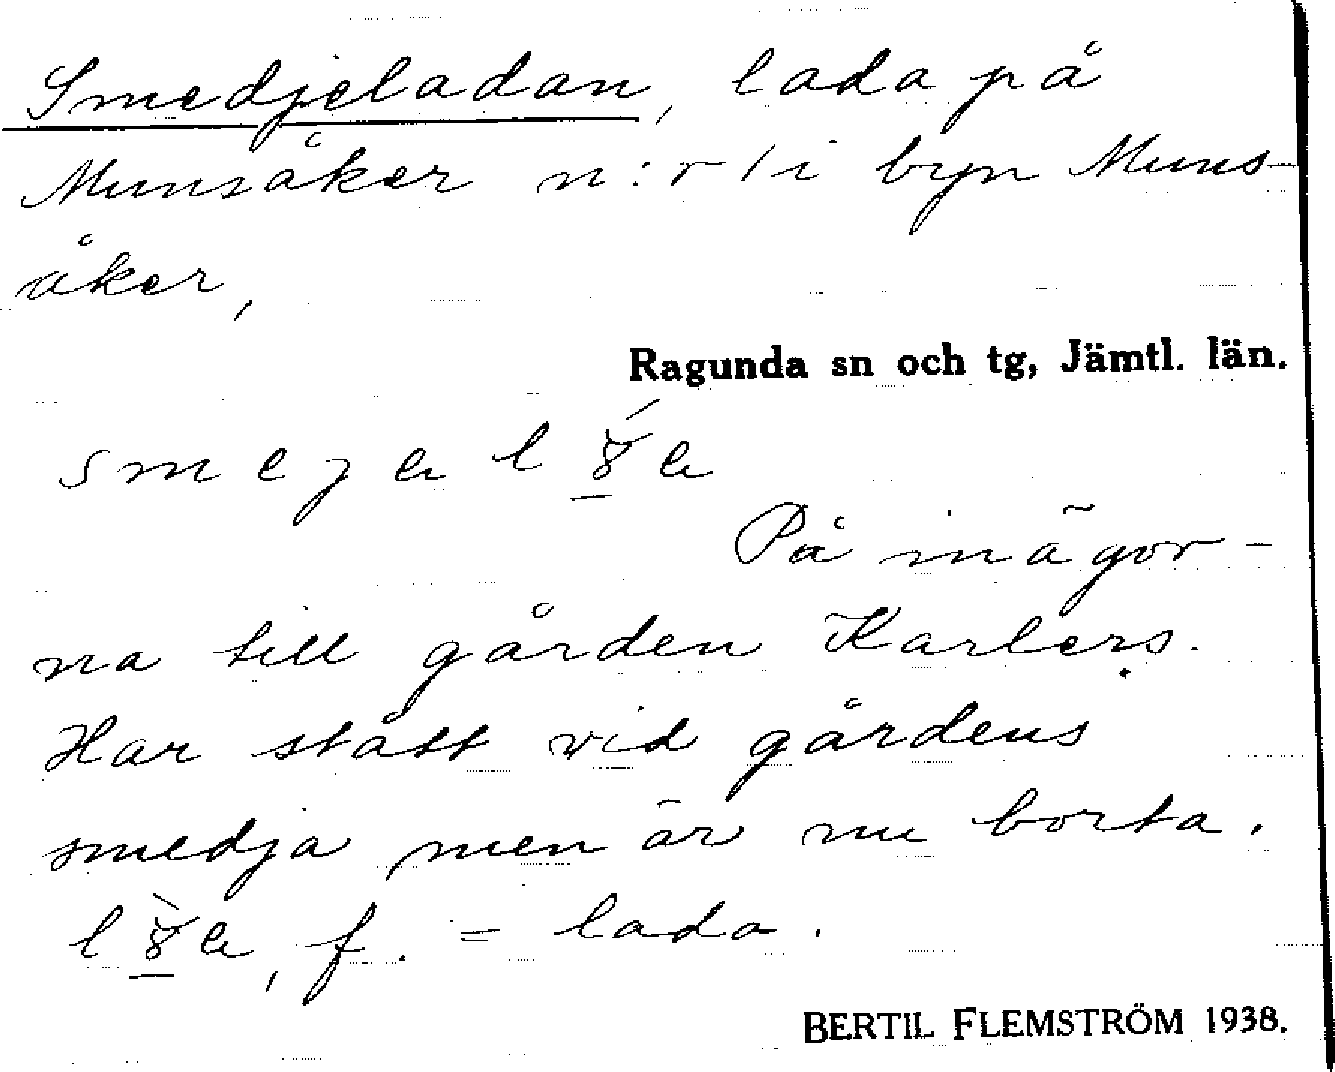 Smedjeladan, lada på
Munsåker n:r 1 i byn Muns-
åker,
Ragunda sn och tg, Jämtl. län.
På inägor-
na till gården Karlers.
Har stått vid gårdens
smedja men är nu borta.
f. = lada.
BERTIL FLEMSTRÖM 1938.